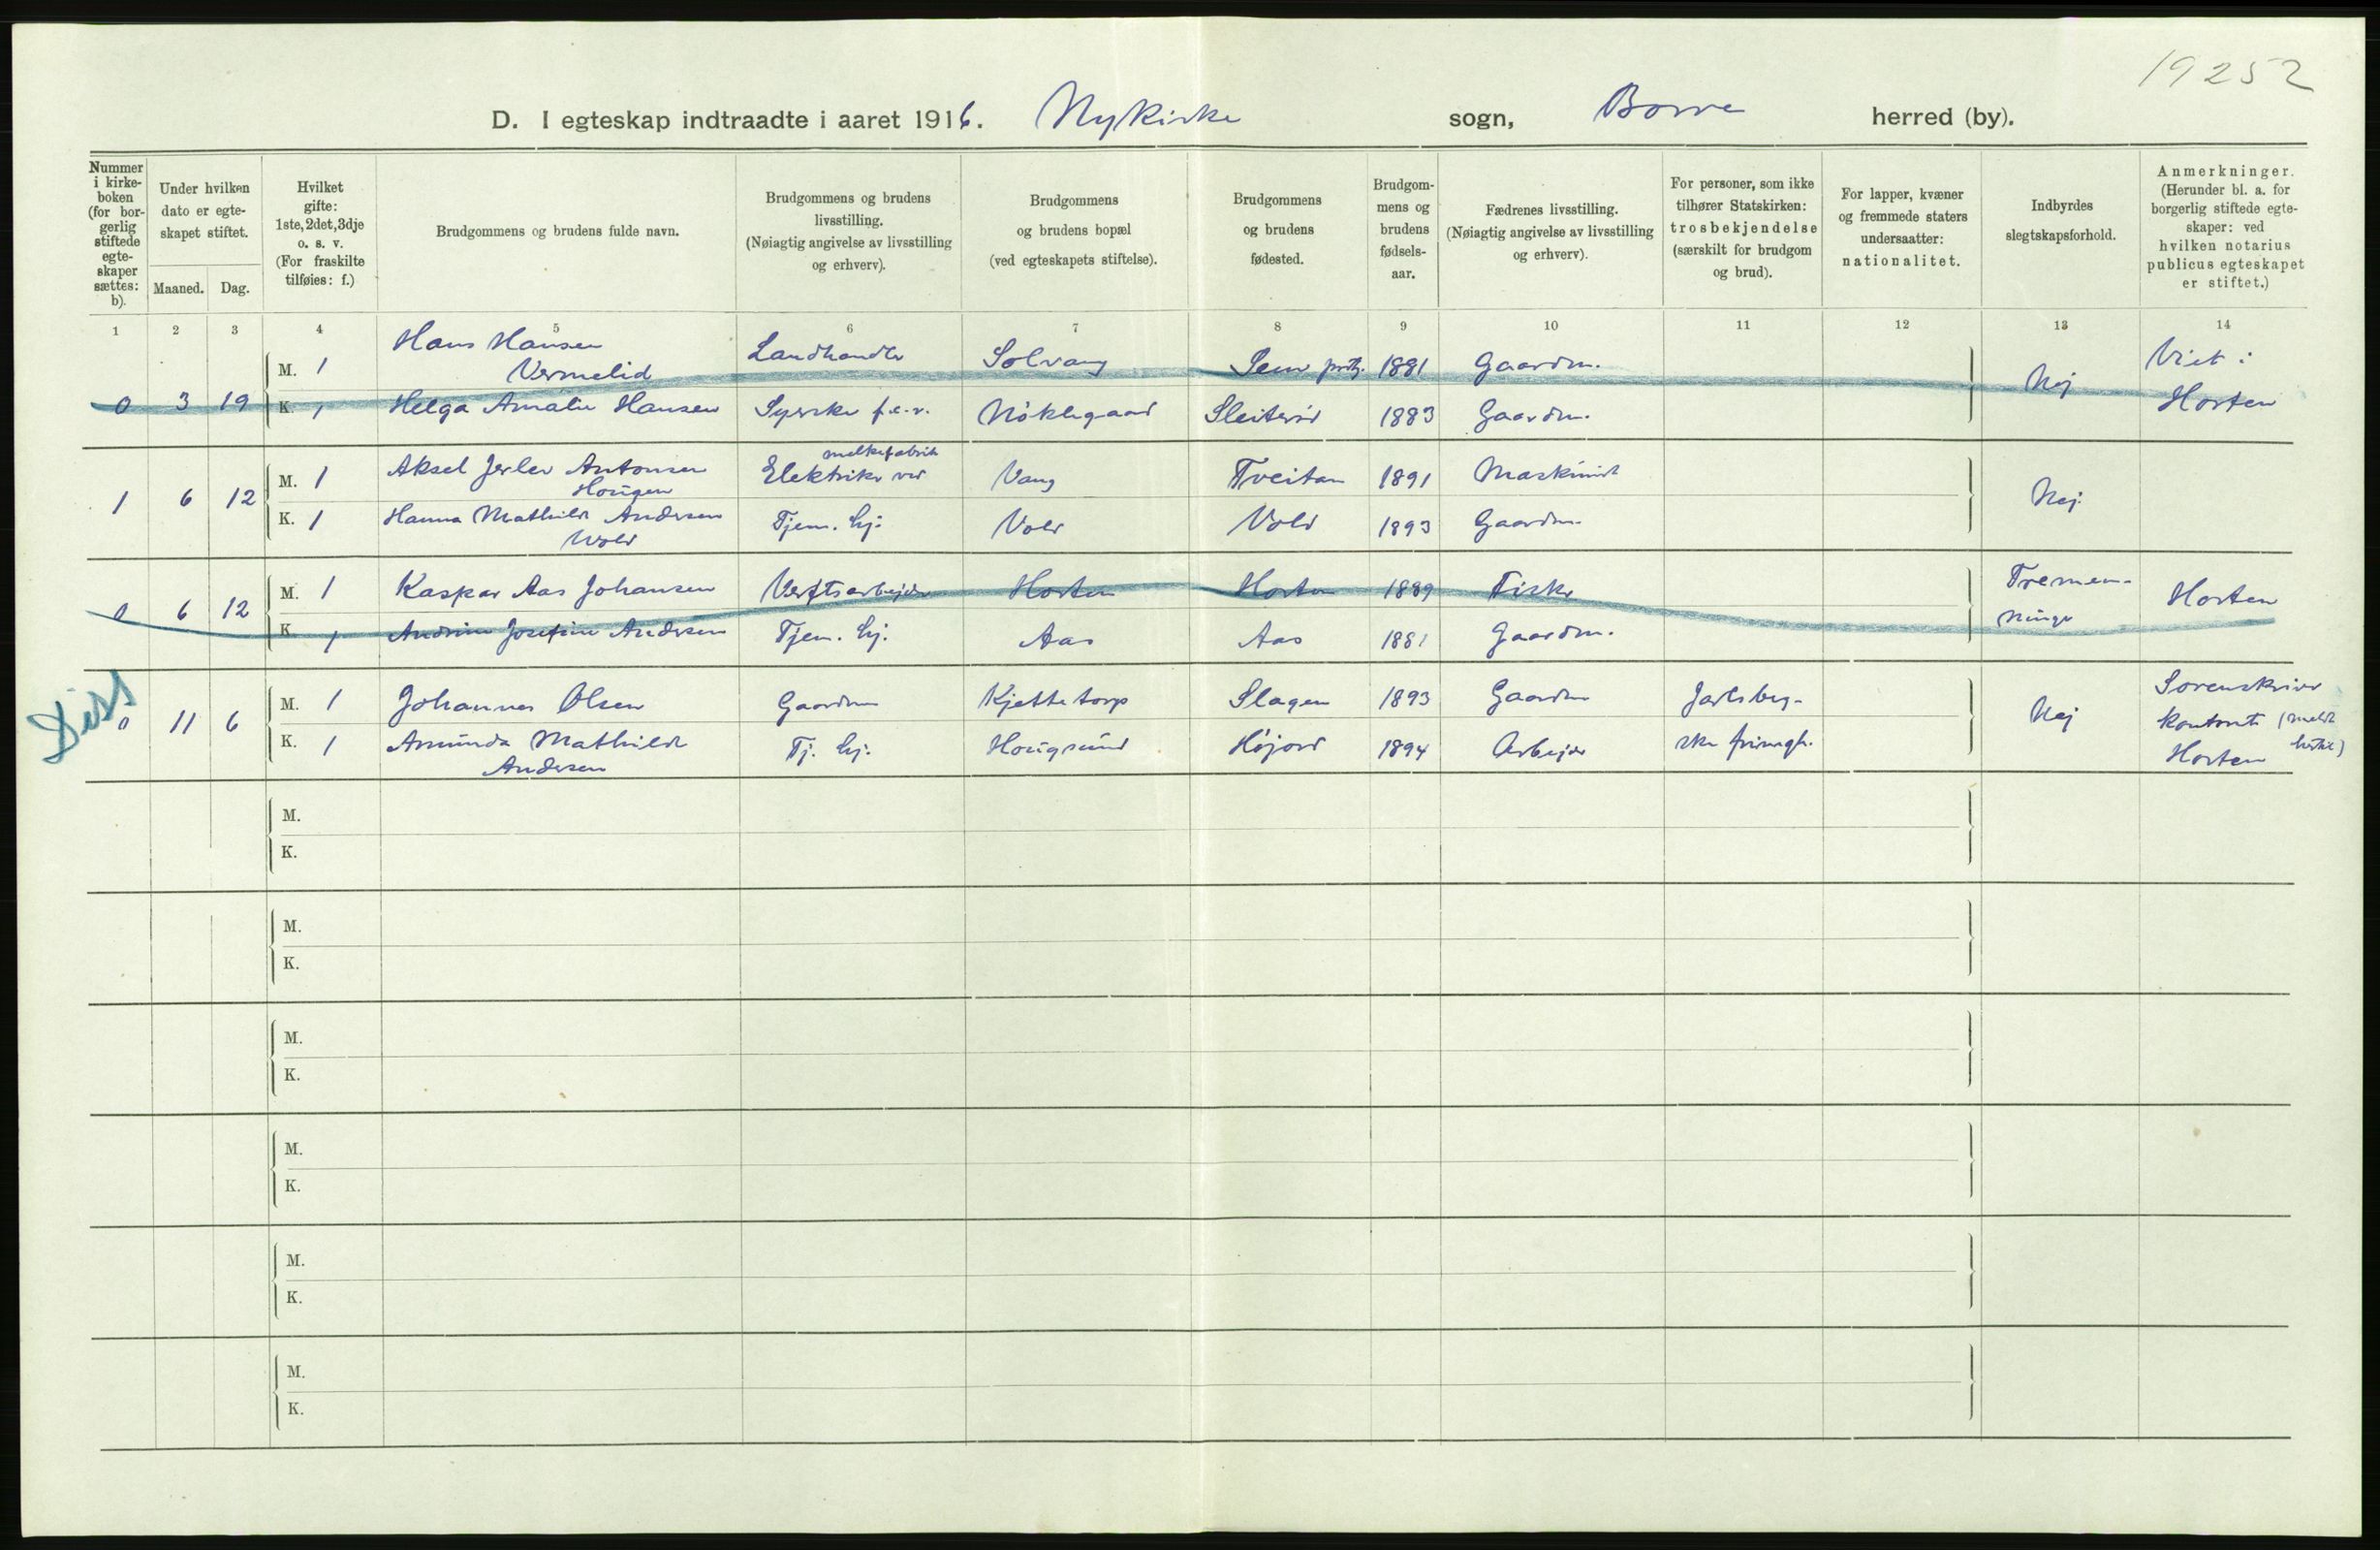 19252
D. I egteskap indtraadte i aaret 1916. Nykirke sogn, Borre herred (by).
Nummer i kirke- boken (for bor- gerlig stiftede egte- skaper sættes: b).
Under hvilken dato er egte- skapet stiftet.
Maaned. Dag.
Hvilket gifte: 1ste, 2det, 3dje o. s. v. (For fraskilte tilføies: f.)
Brudgommens og brudens fulde navn.
Brudgommens og brudens livsstilling. (Nøiagtig angivelse av livsstilling og erhverv).
Brudgommens og brudens bopæl (ved egteskapets stiftelse).
Brudgommens og brudens fødested.
Brudgom- mens og brudens fødsels- aar.
Fædrenes livsstilling. (Nøiagtig angivelse av livsstilling og erhverv).
For personer, som ikke tilhører Statskirken: trosbekjendelse (særskilt for brudgom og brud).
For lapper, kvæner og fremmede staters undersaatter: nationalitet.
Indbyrdes slegtskapsforhold.
Anmerkninger. (Herunder bl. a. for borgerlig stiftede egte- skaper: ved hvilken notarius publicus egteskapet er stiftet.)
1 2 3 4 5 6 7 8 9 10 11 12 13 14
0 3 19
M. 1 Hans Hansen Vermelid Landhandler Solvang Sem prstg. 1881 Gaardm.
K. 1 Helga Amalie Hansen Syerske f.e.r. Nöklegaard Sleiteröd 1883 Gaardm.
Nej Viet i Horten
1 6 12
M. 1 Aksel Jerlev Antonsen Hougen Elektriker ved melkefabrik Vang Tveitan 1891 Maskinist
K. 1 Hanna Mathilde Andersen Wold Tjen. hj. Vold Vold 1893 Gaardm.
Nej.
0 6 12
M. 1 Kaspar Aas Johansen Verftsarbejder Horten Horten 1889 Fisker
K. 1 Andrine Josefine Andersen Tjen. hj. Aas Aas 1881 Gaardm.
Tremen- ninge Horten
Diss
0 11 6
M. 1 Johannes Olsen Gaardm Kjettetorp Slagen 1893 Gaardm Jarlsberg-
K. 1 Amunda Mathilde Andersen Tj. hj. Hougsund Höjord 1894 Arbejder ske frimegh.
Nej Sorenskriver kontoret (meldt hertil) Horten
M.
K.
M.
K.
M.
K.
M.
K.
M.
K.
M.
K.